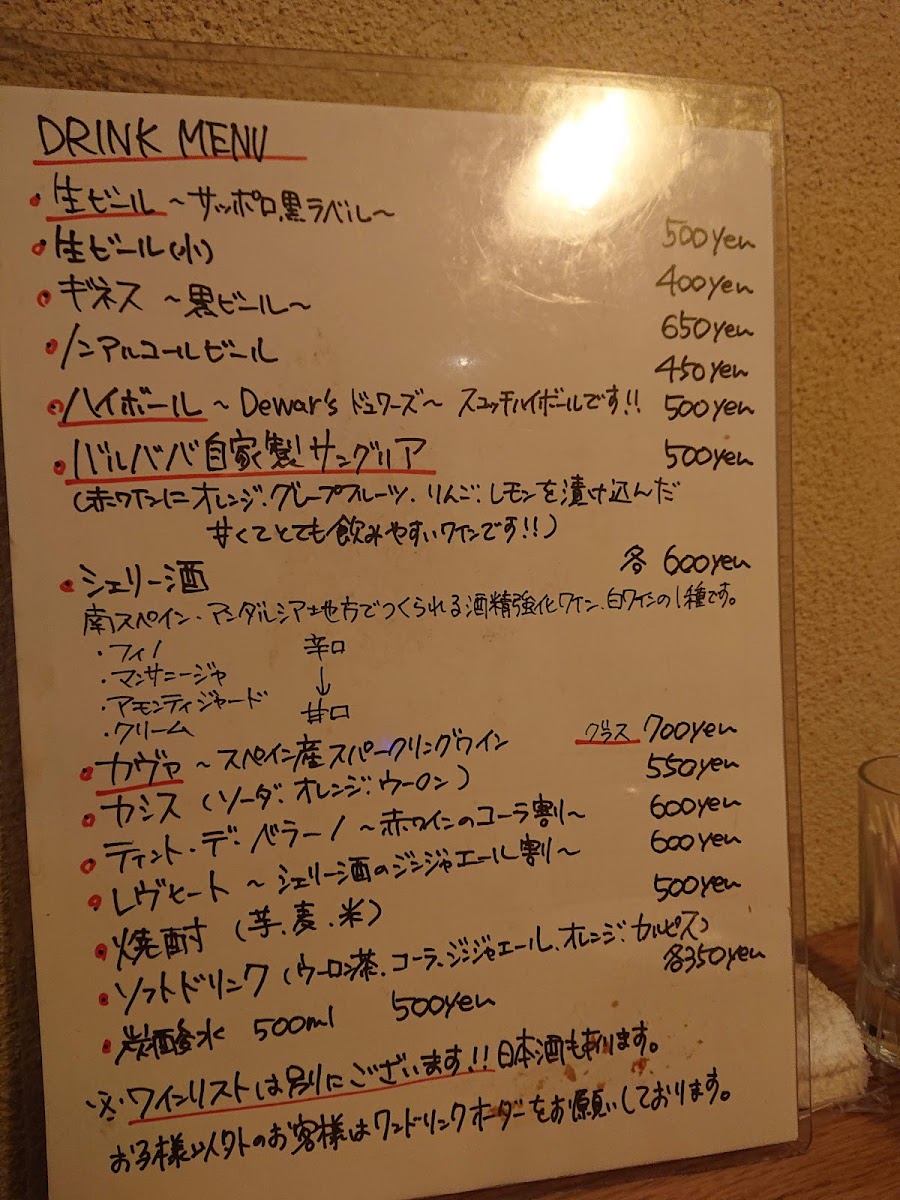 DRINK MENU
・生ビール 〜サッポロ黒ラベル〜 500yen
生ビール(小) 400yen
・ギネス 〜黒ビール〜 650yen
・ノンアルコールビール 450yen
・ハイボール 〜Dewar's ドュワーズ〜 スコッチハイボールです!! 500yen
・バルババ自家製サングリア 500yen
(赤ワインにオレンジ、グレープフルーツ、りんご、レモンを漬け込んだ
甘くてとても飲みやすいワインです!!)
・シェリー酒 各 600yen
南スペイン・アンダルシア地方でつくられる酒精強化ワイン、白ワインの1種です。
・フィノ 辛口
・マンサニージャ ↓
・アモンティジャード
・クリーム 甘口
・カヴァ 〜スペイン産スパークリングワイン グラス 700yen
・カシス (ソーダ、オレンジ、ウーロン) 550yen
・ティント・デ・ベラーノ 〜赤ワインのコーラ割〜 600yen
・レヴヒート 〜シェリー酒のジンジャエール割〜 600yen
・焼酎 (芋、麦、米) 500yen
・ソフトドリンク (ウーロン茶、コーラ、ジンジャエール、オレンジ、カルピス) 各350yen
・炭酸水 500ml 500yen
※ワインリストは別にございます!! 日本酒も有ります。
お子様以外のお客様はワンドリンクオーダーをお願いしております。